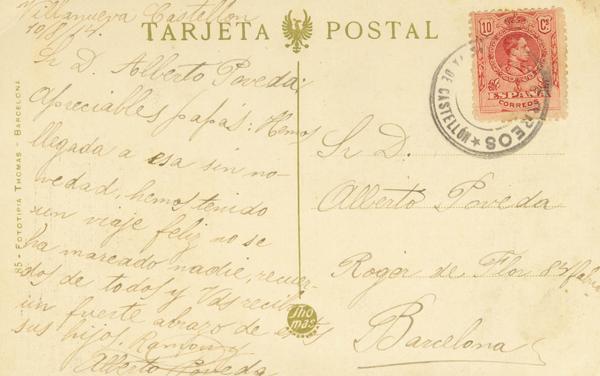 Villanueva Castellon
10/8/14.
TARJETA POSTAL
Sr D. Alberto Poveda;
Apreciables papás: Hemos
llegada a esa sin no-
vedad, hemos tenido
un viaje feliz no se
ha mareado nadie, recuer-
dos de todos y Vds reciban
un fuerte abrazo de estos
sus hijos. Ramon y
Alberto Poveda
85 - FOTOTIPIA THOMAS - BARCELONA
Thomas
10 Cs
ESPAÑA
CORREOS
CORREOS
DE CASTELLON
Sr D.
Alberto Poveda
Roger de Flor 84
Barcelona